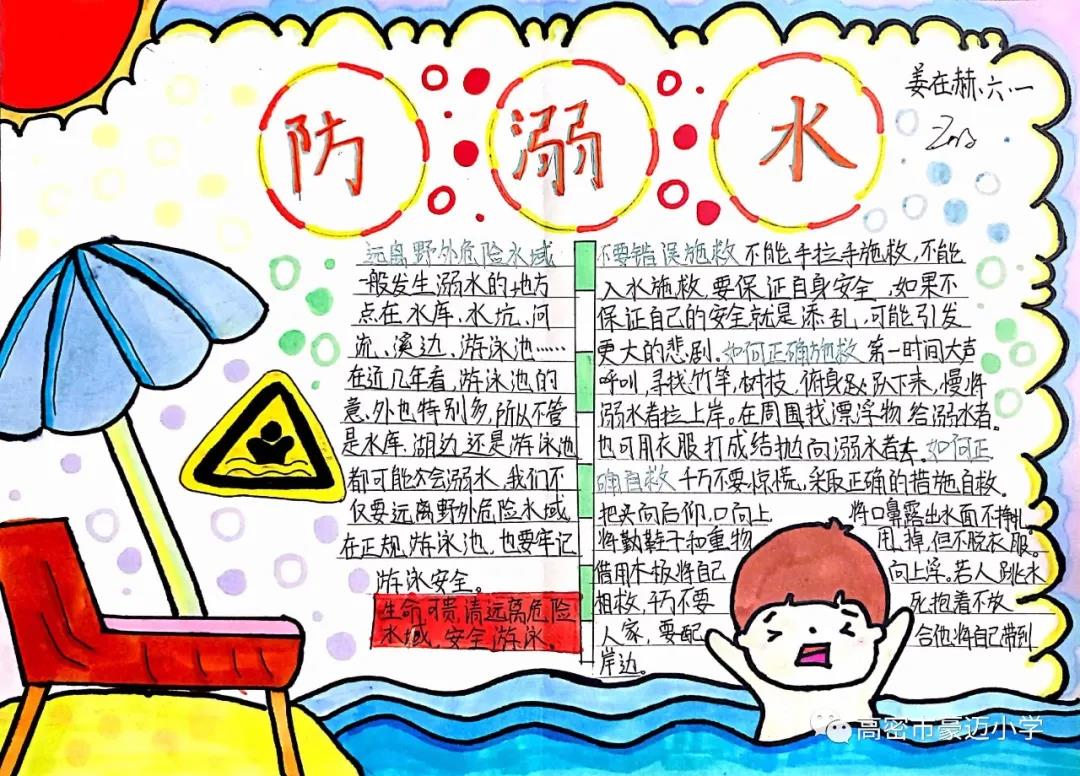 防溺水
姜在赫.六.一
远离野外危险水域
一般发生溺水的地方
点在水库、水坑、河
流、溪边、游泳池……
在近几年看,游泳池的
意外也特别多,所以不管
是水库、湖边,还是游泳池
都可能会溺水,我们不
仅要远离野外危险水域
在正规游泳池,也要牢记
游泳安全。
生命可贵,请远离危险
水域,安全游泳。
不要错误施救 不能手拉手施救,不能
入水施救,要保证自身安全,如果不
保证自己的安全就是添乱,可能引发
更大的悲剧。如何正确施救 第一时间大声
呼叫,寻找竹竿,树枝,俯身趴下来,慢将
溺水者拉上岸。在周围找漂浮物给溺水者。
也可用衣服打成结抛向溺水者去。如何正
确自救 千万不要惊慌,采取正确的措施自救。
把头向后仰,口向上 将口鼻露出水面不挣扎
将鞋子和重物 甩掉,但不脱衣服。
借用木板将自己 向上浮。若人跳水
相救,千万不要 死抱着不放
人家,要配 合他将自己带到
岸边。
高密市豪迈小学